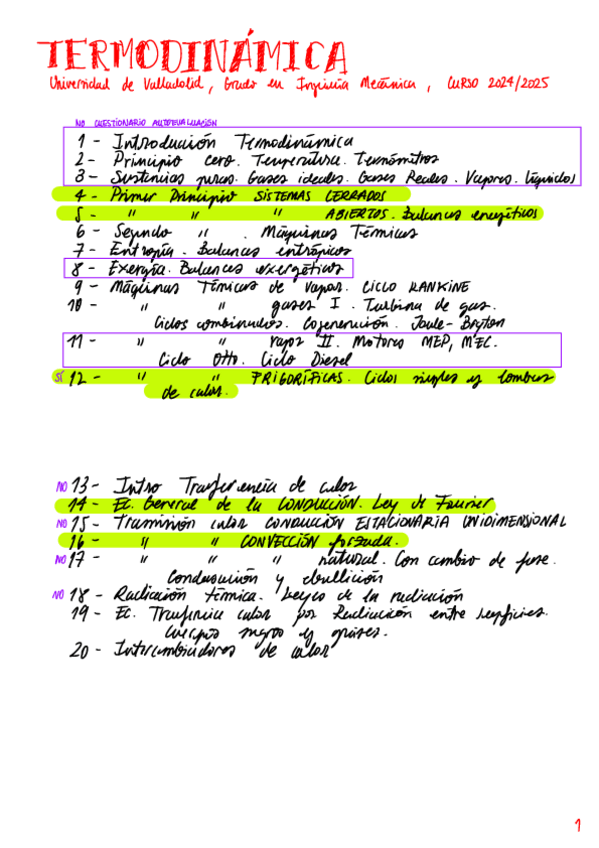 TERMODINÁMICA
Universidad de Valladolid, Grado en Ingeniería Mecánica, CURSO 2024/2025
NO CUESTIONARIO AUTOEVALUACIÓN
1 - Introducción Termodinámica
2 - Principio cero. Temperatura. Termómetros
3 - Sustancias puras. Gases ideales. Gases Reales. Vapores. Líquidos
4 - Primer Principio SISTEMAS CERRADOS
5 - " " " ABIERTOS. Balances energéticos
6 - Segundo " . Máquinas Térmicas
7 - Entropía. Balances entrópicos
8 - Exergía. Balances exergéticos
9 - Máquinas Térmicas de vapor. CICLO RANKINE
10 - " " gases I. Turbina de gas.
Ciclos combinados. Cogeneración. Joule-Brayton
11 - " " II. Motores MEP, MEC.
Ciclo Otto. Ciclo Diesel
SÍ 12 - " " FRIGORÍFICAS. Ciclos simples y bombas
de calor.
NO 13 - Intro Trasferencia de calor
14 - Ec. General de la CONDUCIÓN. Ley de Fourier
NO 15 - Transmisión calor CONDUCCIÓN ESTACIONARIA UNIDIMENSIONAL
16 - " " CONVECCIÓN forzada.
NO 17 - " " " natural. Con cambio de fase.
Condensación y ebullición
NO 18 - Radiación térmica. Leyes de la radiación
19 - Ec. Trasferencia calor por Radiación entre superficies.
Cuerpos negros y grises.
20 - Intercambiadores de calor
1